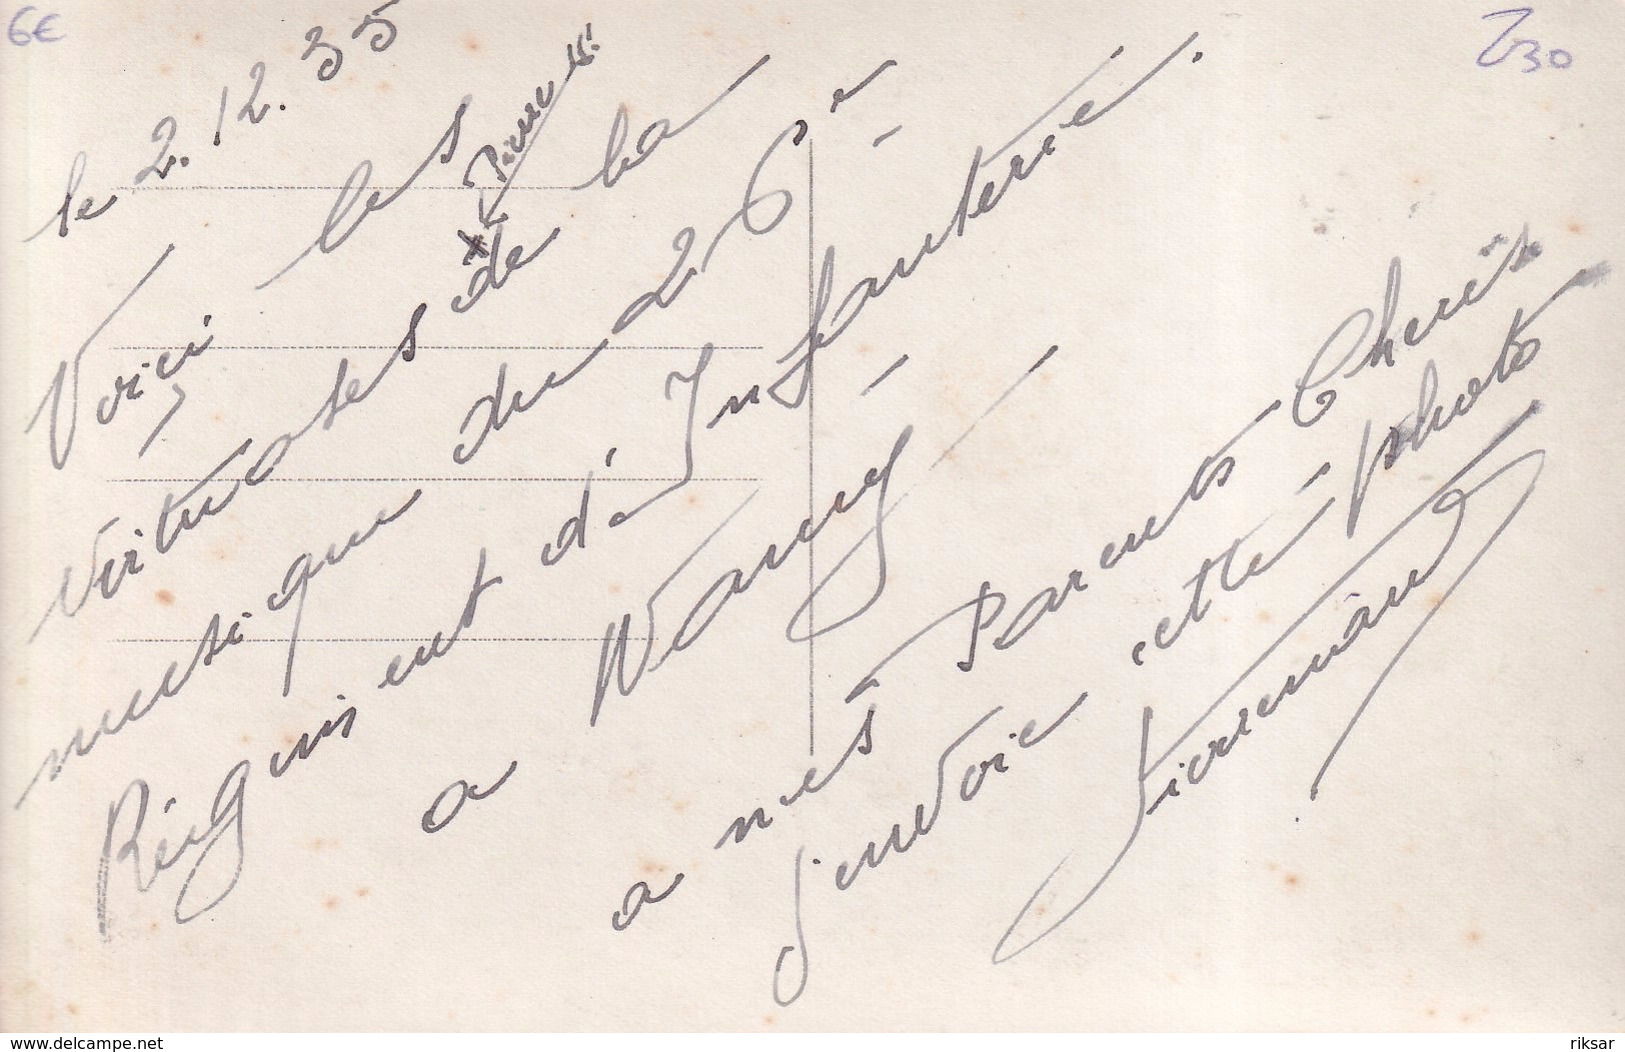 6€
Z30
le 2.12.35
Voici les
virtuoses de la
musique du 26e
Régiment d'Infanterie.
a Nancy
a mes Parents Chéris
J'envoie cette photo
www.delcampe.net
riksar